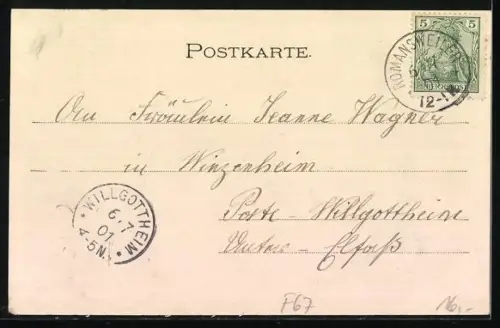 POSTKARTE.
5 5
ROMANSWEILER
12-1N
An Fräulein Jeanne Wagner
in Winzenheim
Poste Willgottheim
Unter-Elsaß
* WILLGOTTHEIM *
6.7
01
4-5N.
F67
16,-